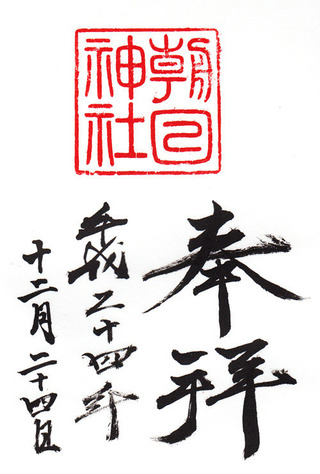 朝日
神社
奉拝
平成二十四年
十二月二十四日